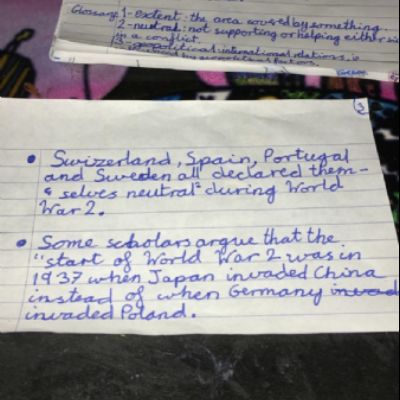 Glossary: 1-extent: the area covered by something.
2-neutral: not supporting or helping either
in a conflict.
3-geopolitical: international relations
3
• Swizerland, Spain, Portugal
and Sweden all declared them-
selves neutral² during World
War 2.
• Some scholars argue that the
"start of World War 2 was in
1937 when Japan invaded China
instead of when Germany invad
invaded Poland.